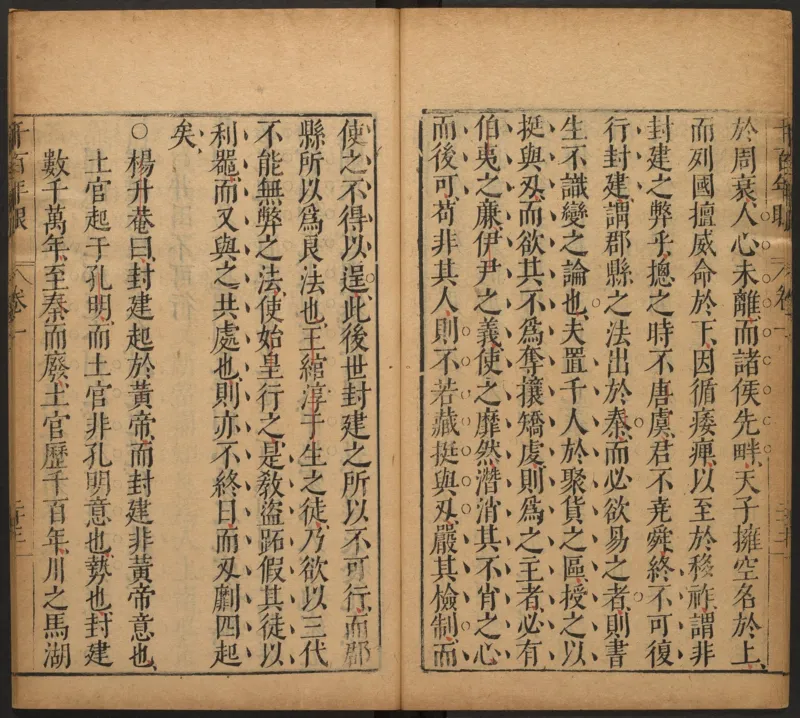 於周衰人心未離而諸侯先畔天子擁空名於上
而列國擅威命於下因循痿痺以至於移祚謂非
封建之弊乎摠之時不唐虞君不尭舜終不可復
行封建謂郡縣之法出於秦而必欲易之者則書
生不識變之論也夫置千人於聚貨之區授之以
挺與刄而欲其不爲奪攘矯虔則爲之主者必有
伯夷之廉伊尹之義使之靡然潛消其不肖之心
而後可苟非其人則不若藏挺與刄嚴其檢制而
使之不得以逞此後世封建之所以不可行而郡
縣所以爲良法也王綰淳于生之徒乃欲以三代
不能無弊之法使始皇行之是敎盜跖假其徒以
利噐而又與之共處也則亦不終日而刄劘四起
矣
○楊升菴曰封建起於黃帝而封建非黃帝意也
土官起于孔明而土官非孔明意也勢也封建
數千萬年至秦而廢土官歷千百年川之馬湖
千百年眼 卷一